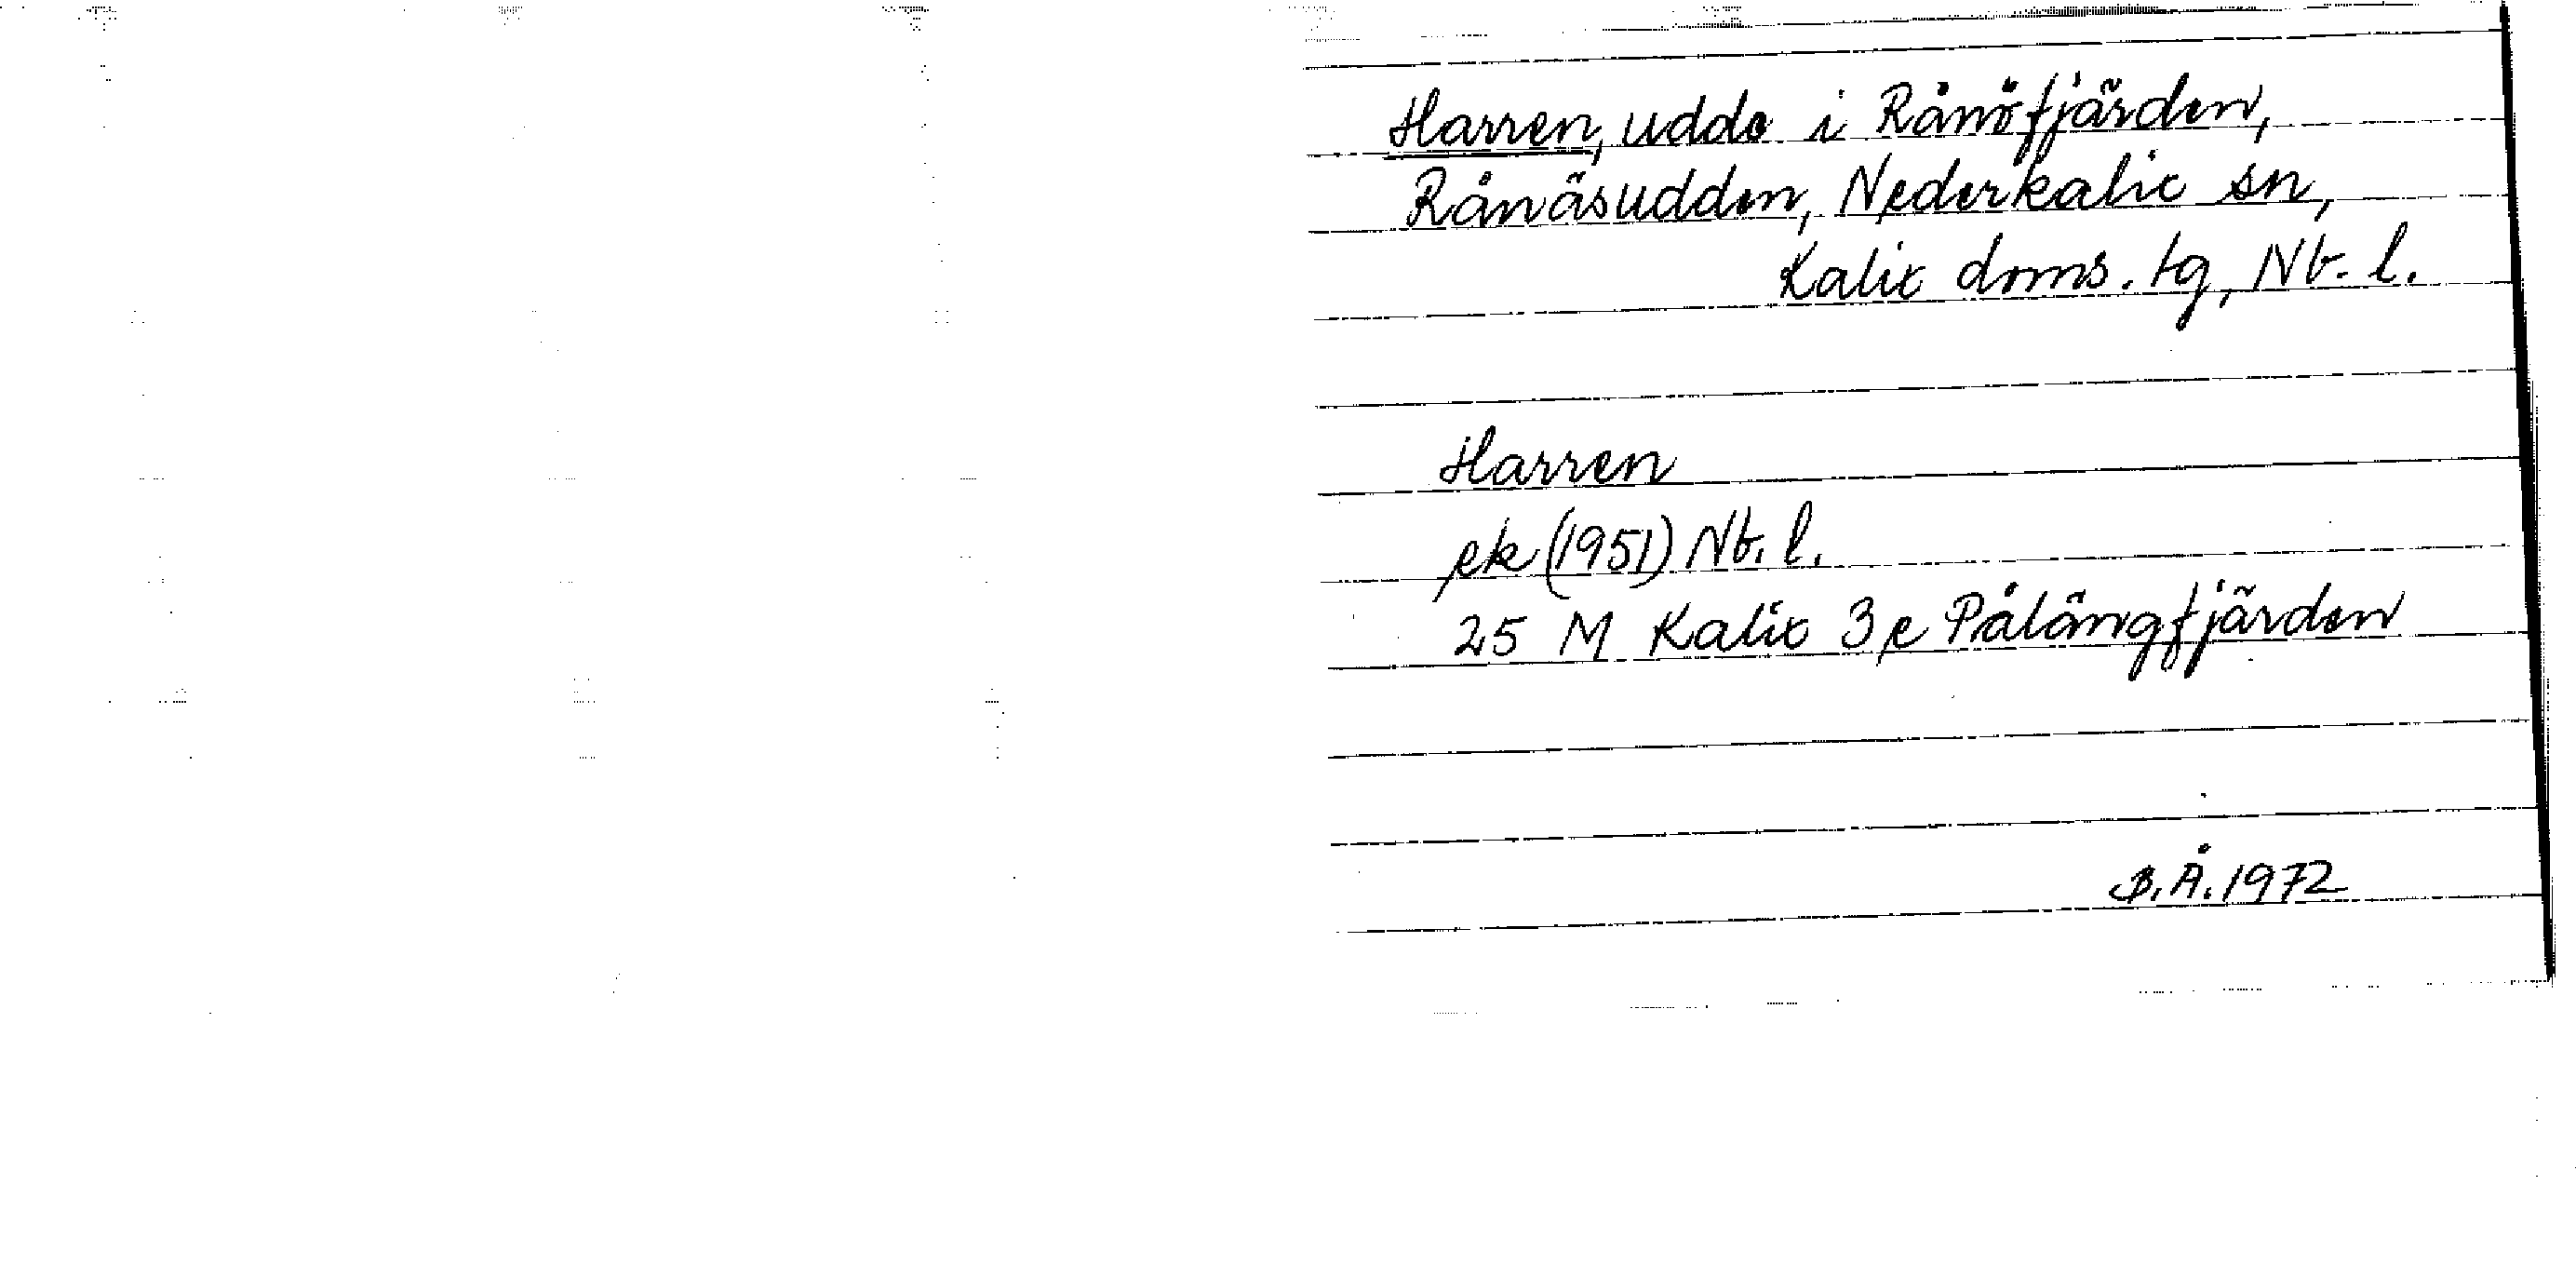 Harren, udde i Rånöfjärden,
Rånäsudden, Nederkalix sn,
Kalix doms. tg, Nb. l.
Harren
ek (1951) Nb. l.
25 M Kalix 3 e Pålängfjärden
B.Å. 1972